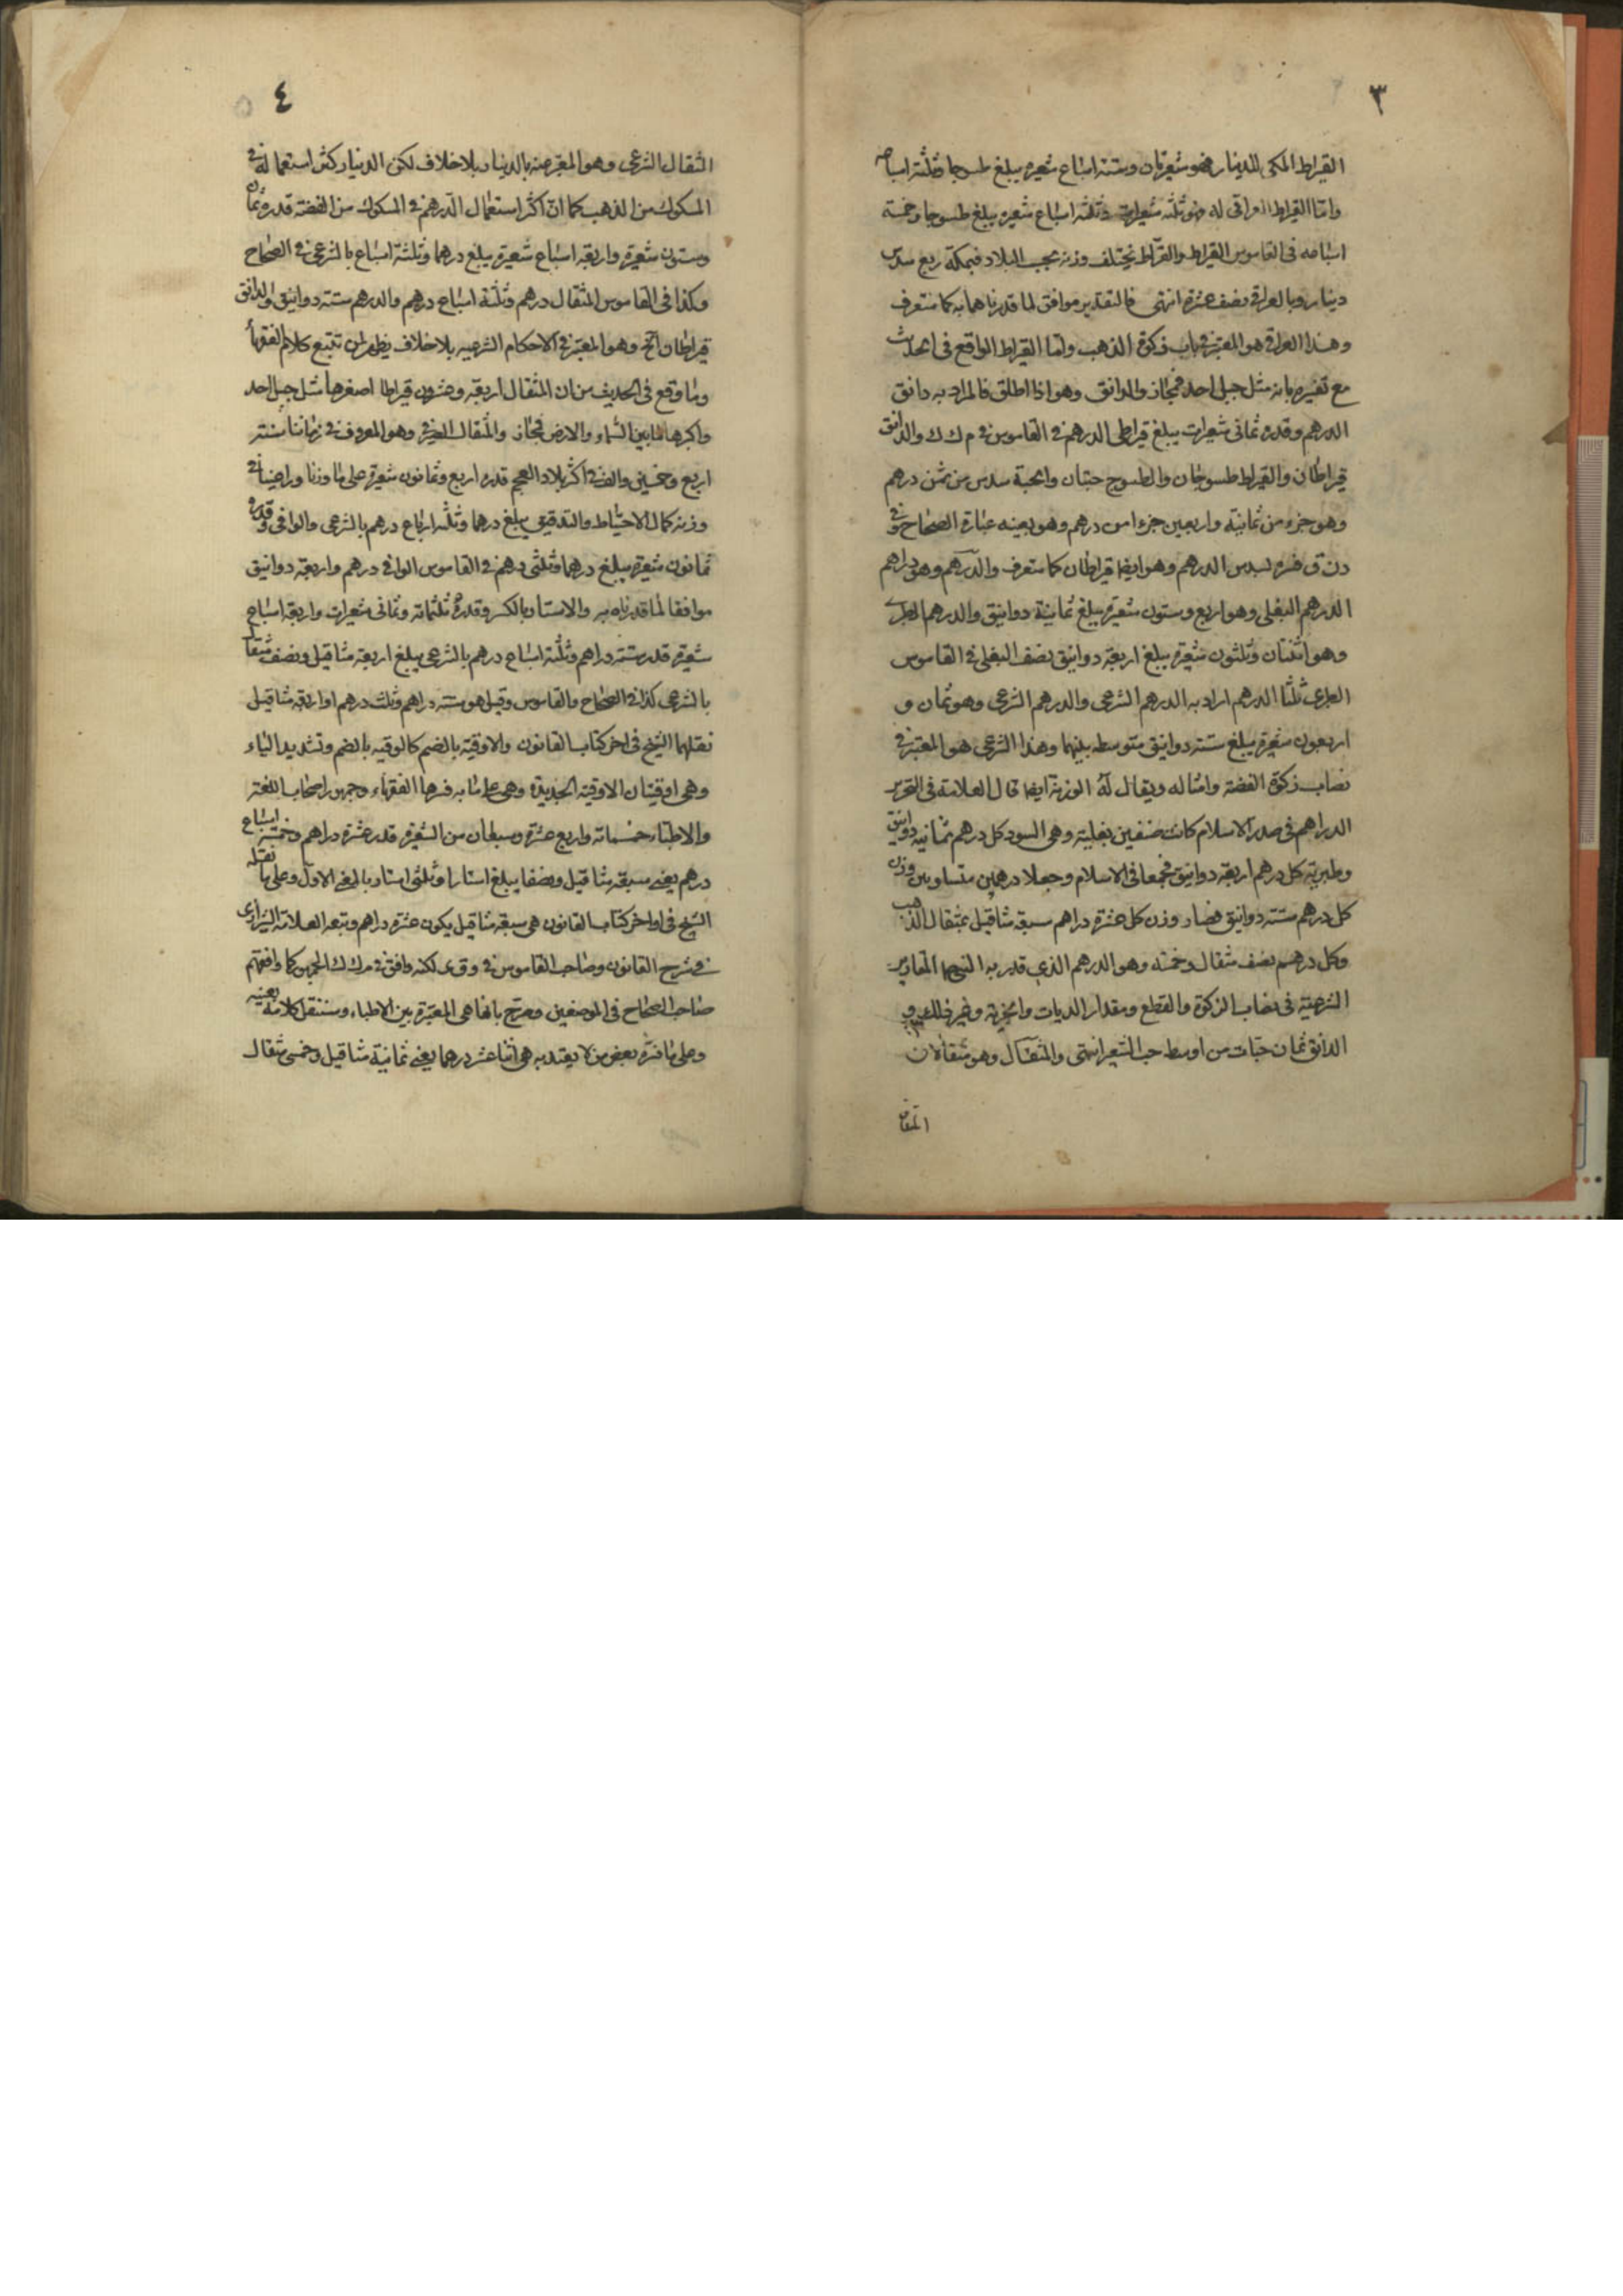 ٣
القيراط المكى للدينار فهو شعيرتان وستة اسباع شعيرة يبلغ طسوجا وثلثة اسباعه
وامّا القيراط العراقى له فهو ثلثه شعيرات وثلثة اسباع شعيرة يبلغ طسوجا وخمسة
اسباعه فى القاموس القيراط والقرّاط يختلف وزنه بحسب البلاد فبمكة ربع سدس
دينار وبالعراق نصف عشره انتهى فالتقدير موافق لما قدرناهما به كما ستعرف
وهذا العراقى هو المعتبر فى باب زكوة الذهب وامّا القيراط الواقع فى الحديث
مع تفسيره بانه مثل جبل احد فمجاز والدانق وهو اذا اطلق فالمراد به دانق
الدرهم وقدره ثمانى شعيرات يبلغ قيراطى الدرهم فى القاموس فى م ك ك والدانق
قيراطان والقيراط طسوجان والطسوج حبتان والحبة سدس من ثمن درهم
وهو جزء من ثمانية واربعين جزءا من درهم وهو بعينه عبارة الصحاح وفى
دن ق فسره بسدس الدرهم وهو ايضا قيراطان كما ستعرف والدّرهم وهو دراهم
الدرهم البغلى وهو اربع وستون شعيرة يبلغ ثمانية دوانيق والدرهم الطبرى
وهو اثنتان وثلثون شعيرة يبلغ اربعة دوانيق نصف البغلى فى القاموس
الطبرى ثلثا الدرهم اراد به الدرهم الشرعى والدرهم الشرعى وهو ثمان و
اربعون شعيرة يبلغ ستة دوانيق متوسطه بينهما وهذا الشرعى هو المعتبر فى
نصاب زكوة الفضة وامثاله ويقال له الوزنة ايضا قال العلامة فى التحرير
الدراهم فى صدر الاسلام كانت صنفين بغلية وهى السود كل درهم ثمانية دوانيق
وطبرية كل درهم اربعة دوانيق فجمعا فى الاسلام وجعلا درهمين متساويين وزن
كل درهم ستة دوانيق فصار وزن كل عشرة دراهم سبعة مثاقيل بمثقال الذهب
وكل درهم نصف مثقال وخمسه وهو الدرهم الذى قدر به النبى المقادير
الشرعية فى نصاب الزكوة والقطع ومقدار الديات والجزية وغير ذلك و
الدانق ثمان حبّات من اوسط حب الشعير انتهى والمثقال وهو مثقالان
المثقال
٤
المثقال الشرعى وهو المعبر عنه بالدينار بلا خلاف لكن الدينار كثر استعماله فى
المسكوك من الذهب كما انّ اكثر استعمال الدرهم فى المسكوك من الفضة قدره ثمان
وستون شعيرة واربعة اسباع شعيرة يبلغ درهما وثلثة اسباع بالشرعى فى الصحاح
وكذا فى القاموس المثقال درهم وثلثة اسباع درهم والدرهم ستة دوانيق والدانق
قيراطان الخ وهو المعتبر فى الاحكام الشرعيه بلا خلاف يظهر لمن تتبع كلام الفقهاء
وما وقع فى الحديث من ان المثقال اربعة وعشرون قيراطا اصغرها مثل جبل احد
واكبرها ما بين السماء والارض فمجاز والمثقال الصيرفى وهو المعروف فى زماننا سنة
اربع وخمسين والف فى اكثر بلاد العجم قدره اربع وثمانون شعيرة على ما وزنا وراعينا فى
وزنه كمال الاحتياط والتدقيق يبلغ درهما وثلثه ارباع درهم بالشرعى والوافى وقدره
ثمانون شعيرة يبلغ درهما وثلثى درهم فى القاموس الوافى درهم واربعة دوانيق
موافقا لما قدرناه به والاستار بالكسر وقدره ثلثمائة وثمانى شعيرات واربعة اسباع
شعيرة قدر ستة دراهم وثلثة اسباع درهم بالشرعى يبلغ اربعة مثاقيل ونصف مثقال
بالشرعى كذا فى الصحاح والقاموس وقيل هو ستة دراهم وثلث درهم او اربعة مثاقيل
نقلهما الشيخ فى اخر كتاب القانون والاوقية بالضم كالوقيه بالضم وتشديد الياء
وهى اوقيتان الاوقية الجديدة وهى على ما به فسرها الفقهاء وجمهور اصحاب اللغة
والاطباء خمسمائة واربع عشرة وسبعان من الشعيرة قدر عشرة دراهم وخمسة اسباع
درهم يعنى سبعة مثاقيل ونصفا يبلغ استارا وثلثى استار بالمعنى الاول وعلى ما نقله
الشيخ فى اواخر كتاب القانون هى سبعة مثاقيل يكون عشرة دراهم وتبعه العلامة الشيرازى
فى شرح القانون وصاحب القاموس فى وق ى لكنه وافق فى م ك ك الجمهور كما وافقهم
صاحب الصحاح فى الموضعين وصرح بانها هى المعتبرة بين الاطباء وسننقل كلامه بعينه
وعلى ما فسّره بعض من لا يعتد به هى اثنا عشر درهما يعنى ثمانية مثاقيل وخمسى مثقال